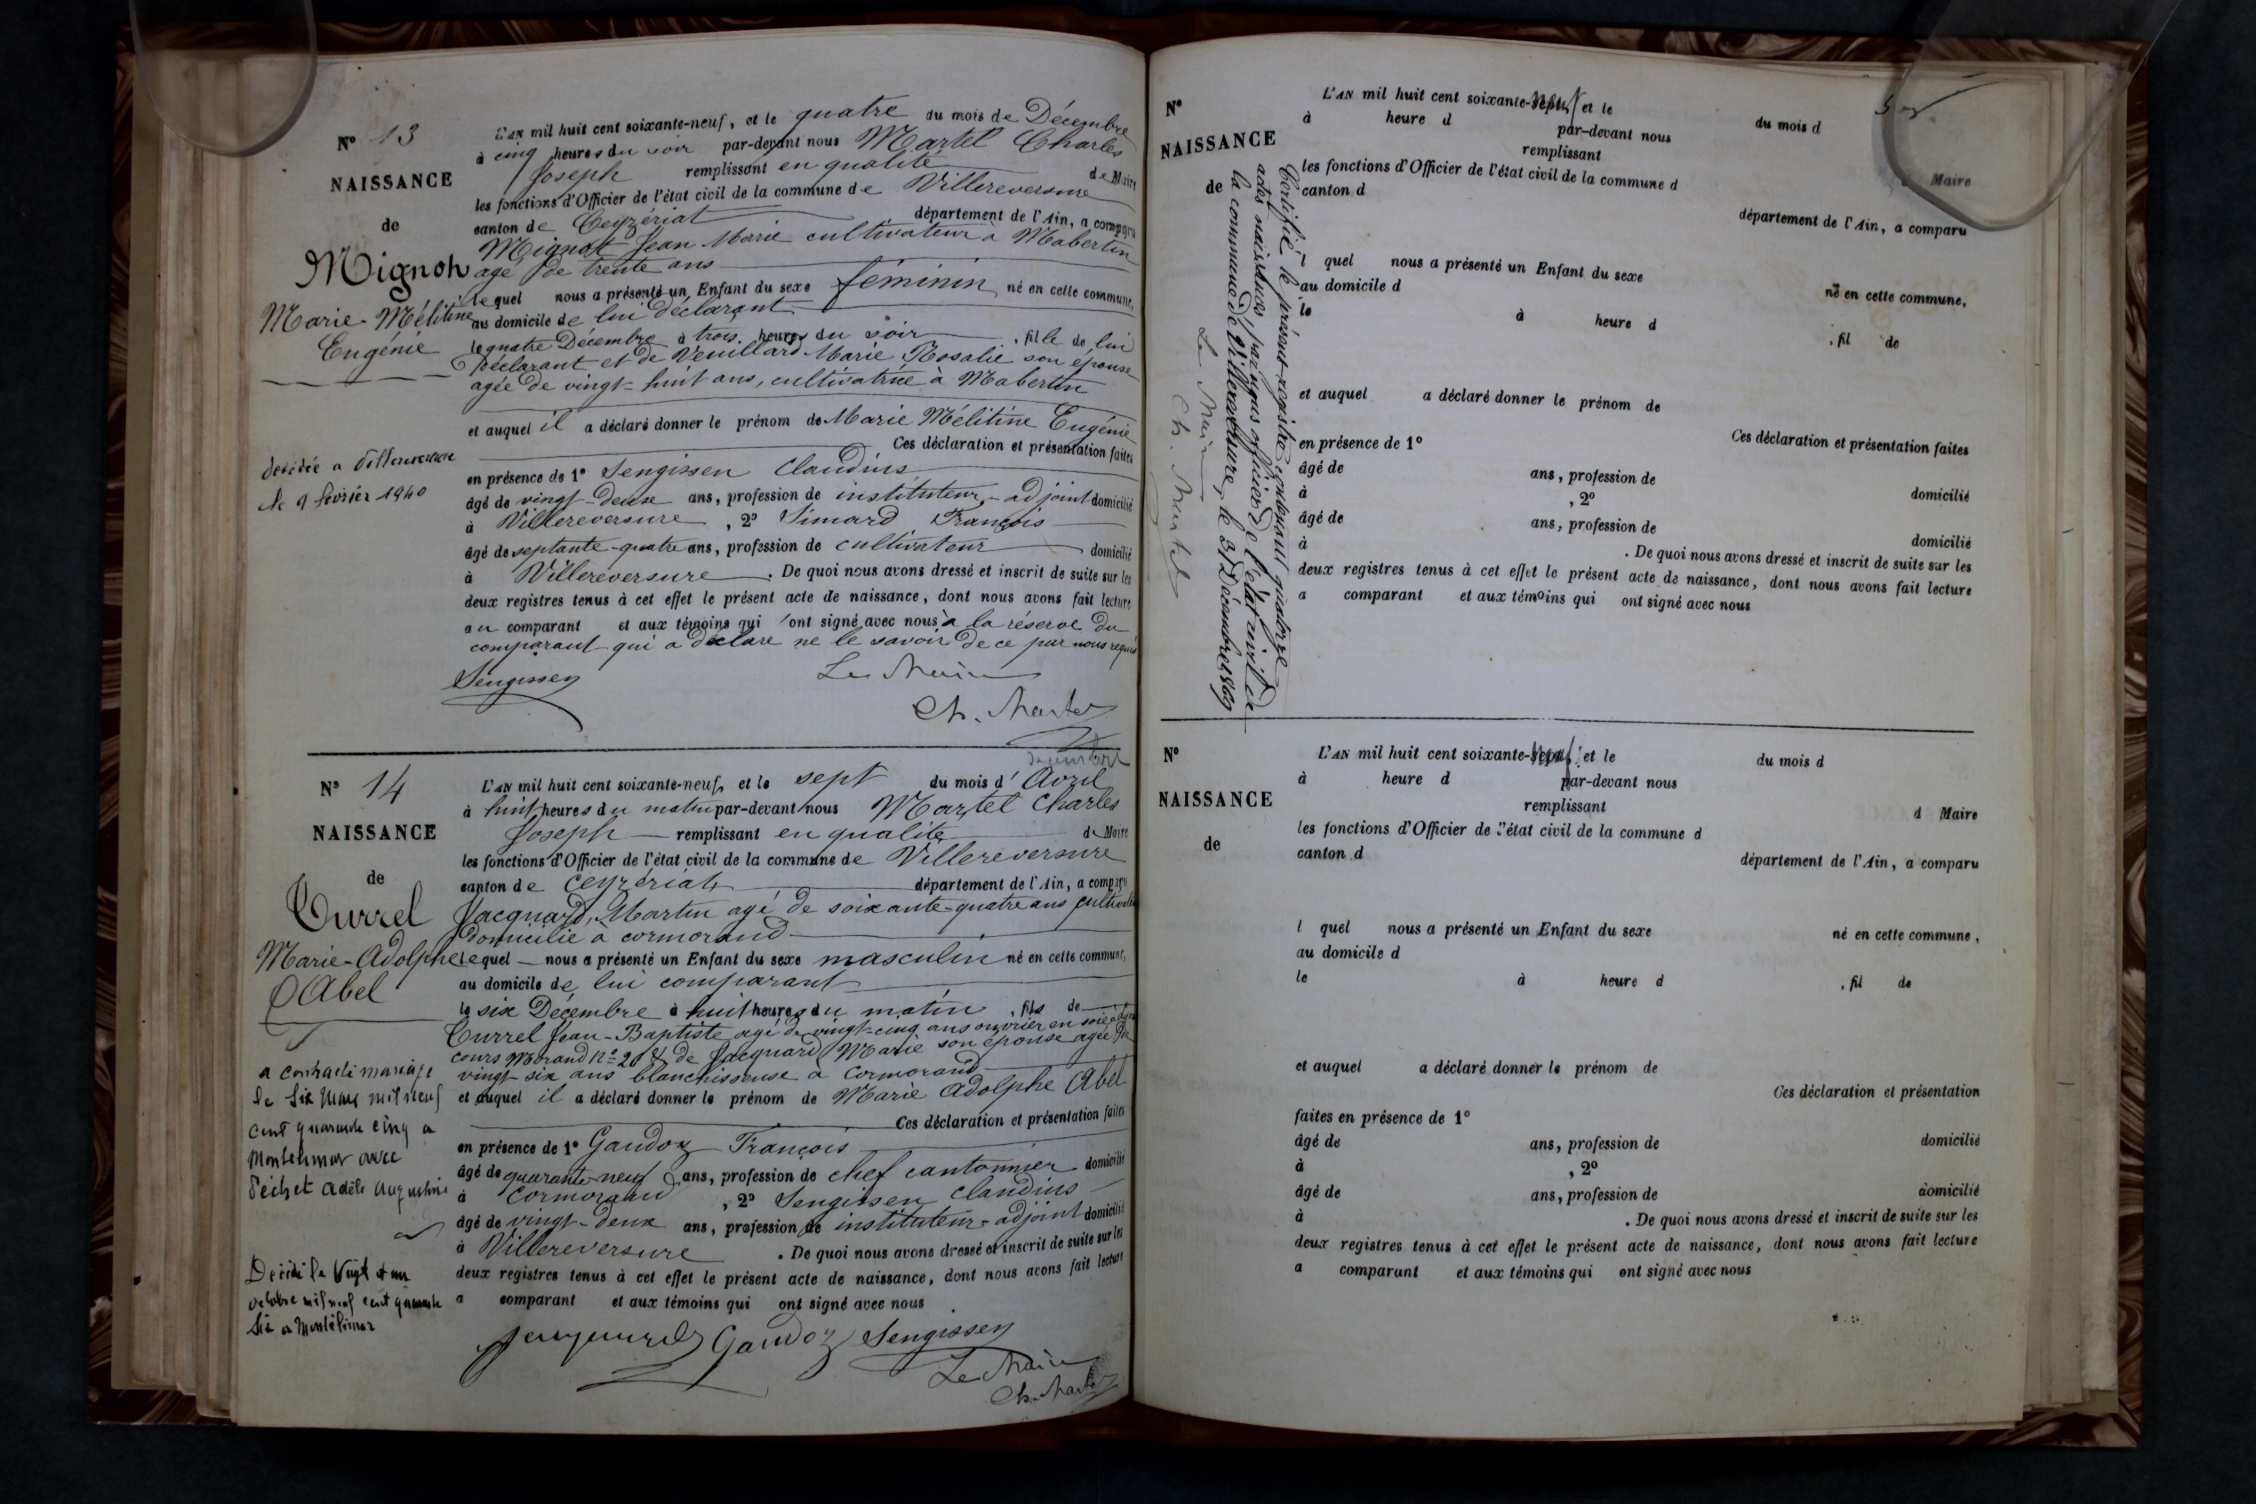 N° 13
NAISSANCE
de
Mignon
Marie-Mélitine
Eugénie
décédée a Villereversure
le 9 février 1940
L'AN mil huit cent soixante-neuf, et le quatre du mois de Décembre
à cinq heures du soir par-devant nous Martel Charles
Joseph remplissant en qualité de Maire
les fonctions d'Officier de l'état civil de la commune de Villereversure
canton de Ceyzériat département de l'Ain, a comparu
Mignot Jean Marie cultivateur à Mabertin
agé de trente ans
lequel nous a présenté un Enfant du sexe féminin né en cette commune,
au domicile de lui déclarant
le quatre Décembre à trois heures du soir, fille de lui
déclarant et de Veuillard Marie Rosalie son épouse
agée de vingt-huit ans, cultivatrice à Mabertin
et auquel il a déclaré donner le prénom de Marie Mélitine Eugénie
Ces déclaration et présentation faites
en présence de 1° Sengissen Claudius
âgé de vingt-deux ans, profession de instituteur-adjoint domicilié
à Villereversure, 2° Simard François
âgé de septante-quatre ans, profession de cultivateur domicilié
à Villereversure. De quoi nous avons dressé et inscrit de suite sur les
deux registres tenus à cet effet le présent acte de naissance, dont nous avons fait lecture
au comparant et aux témoins qui ont signé avec nous à la réserve du
comparant qui a déclaré ne le savoir de ce par nous requis
Sengissen Le Maire
Ch. Martel
N° 14
NAISSANCE
de
Currel
Marie-Adolphe
Abel
a contracté mariage
le six Mars mil neuf
cent quarante cinq a
Montelimar avec
Péchet Adèle Augustine
Décédé le Vingt et un
octobre mil neuf cent quarante
six a Montélimar
L'AN mil huit cent soixante-neuf, et le sept du mois d'Avril
à huit heures du matin par-devant nous Martel Charles
Joseph remplissant en qualité de Maire
les fonctions d'Officier de l'état civil de la commune de Villereversure
canton de Ceyzériat département de l'Ain, a comparu
Jacquard, Martin agé de soixante-quatre ans cultivateur
domicilié à cormorand
lequel nous a présenté un Enfant du sexe masculin né en cette commune,
au domicile de lui comparant
le six Décembre à huit heures du matin, fils de
Currel Jean-Baptiste agé de vingt-cinq ans ouvrier en soie
cours Morand n° 20 & de Jacquard Marie son épouse agée de
vingt-six ans blanchisseuse à Cormorand
et auquel il a déclaré donner le prénom de Marie Adolphe Abel
Ces déclaration et présentation faites
en présence de 1° Gaudoz François
âgé de quarante-neuf ans, profession de chef cantonnier domicilié
à Cormorand, 2° Sengissen Claudius
âgé de vingt-deux ans, profession de instituteur-adjoint domicilié
à Villereversure. De quoi nous avons dressé et inscrit de suite sur les
deux registres tenus à cet effet le présent acte de naissance, dont nous avons fait lecture
a comparant et aux témoins qui ont signé avec nous.
Gaudoz Sengissen
Le Maire
Ch. Martel
N°
NAISSANCE
de
Certifié le présent registre contenant quatorze
actes naissances, par nous officier de l'état civil de
la commune de Villereversure, le 31 Décembre 1869
Le Maire
Ch. Martel
L'AN mil huit cent soixante-neuf et le du mois d
à heure d par-devant nous
remplissant d Maire
les fonctions d'Officier de l'état civil de la commune d
canton d département de l'Ain, a comparu
l quel nous a présenté un Enfant du sexe né en cette commune,
au domicile d
le à heure d , fil de
et auquel a déclaré donner le prénom de
Ces déclaration et présentation faites
en présence de 1°
âgé de ans, profession de domicilié
à , 2°
âgé de ans, profession de domicilié
à . De quoi nous avons dressé et inscrit de suite sur les
deux registres tenus à cet effet le présent acte de naissance, dont nous avons fait lecture
a comparant et aux témoins qui ont signé avec nous
N°
NAISSANCE
de
L'AN mil huit cent soixante-neuf et le du mois d
à heure d par-devant nous
remplissant d Maire
les fonctions d'Officier de l'état civil de la commune d
canton d département de l'Ain, a comparu
l quel nous a présenté un Enfant du sexe né en cette commune,
au domicile d
le à heure d , fil de
et auquel a déclaré donner le prénom de
Ces déclaration et présentation
faites en présence de 1°
âgé de ans, profession de domicilié
à , 2°
âgé de ans, profession de domicilié
à . De quoi nous avons dressé et inscrit de suite sur les
deux registres tenus à cet effet le présent acte de naissance, dont nous avons fait lecture
a comparant et aux témoins qui ont signé avec nous